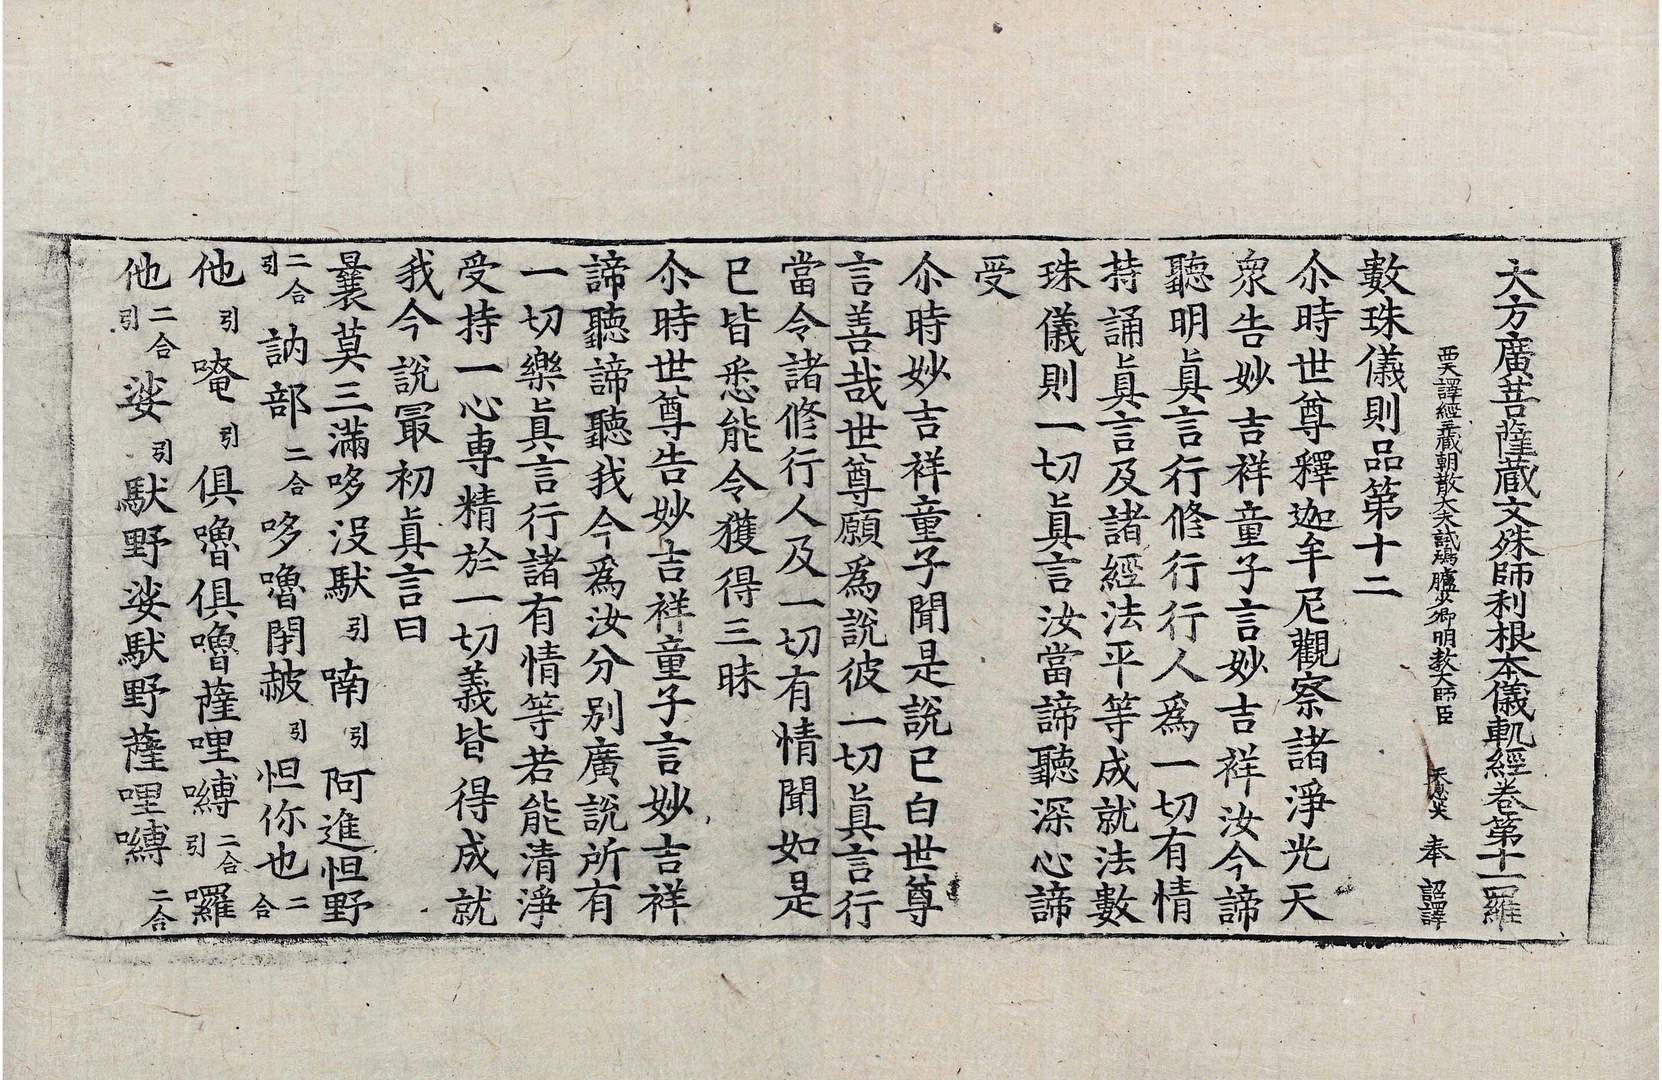 大方廣菩薩藏文殊師利根本儀軌經卷第十一 羅
西天譯經三藏朝散大夫試鴻臚少卿明教大師臣 天息災 奉 詔譯
數珠儀則品第十二
尒時世尊釋迦牟尼觀察諸淨光天
衆告妙吉祥童子言妙吉祥汝今諦
聽明眞言行修行行人爲一切有情
持誦眞言及諸經法平等成就法數
珠儀則一切眞言汝當諦聽深心諦
受
尒時妙吉祥童子聞是說已白世尊
言善哉世尊願爲說彼一切眞言行
當令諸修行人及一切有情聞如是
已皆悉能令獲得三昧
尒時世尊告妙吉祥童子言妙吉祥
諦聽諦聽我今爲汝分別廣說所有
一切樂眞言行諸有情等若能清淨
受持一心專精於一切義皆得成就
我今說冣初眞言曰
曩莫三滿哆沒馱引喃引阿進怛野
二合引訥部二合哆嚕閉皷引怛你也二合
他引唵引俱嚕俱嚕薩哩嚩二合引囉
他二合引娑引馱野娑馱野薩哩嚩二合